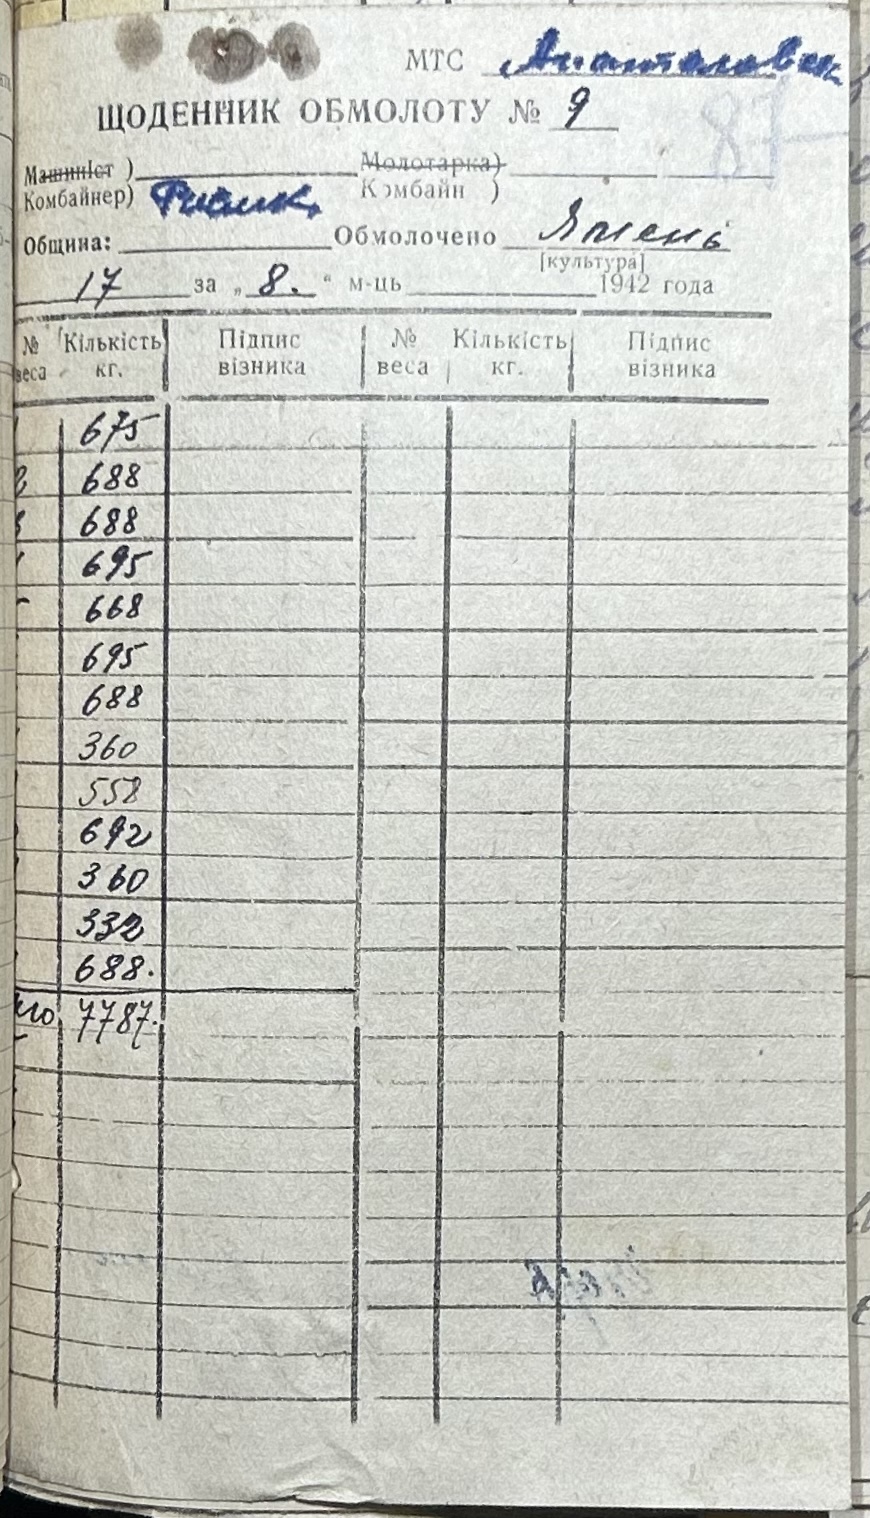 МТС
ЩОДЕННИК ОБМОЛОТУ № 9
Машиніст ) Молотарка)
Комбайнер) Комбайн )
Община: Обмолочено Ячмень
[культура]
17 за „ 8. “ м-ць 1942 года
№ Кількість Підпис № Кількість Підпис
веса кг. візника веса кг. візника
675
2 688
3 688
695
5 668
695
688
360
558
692
360
332
688.
7787.